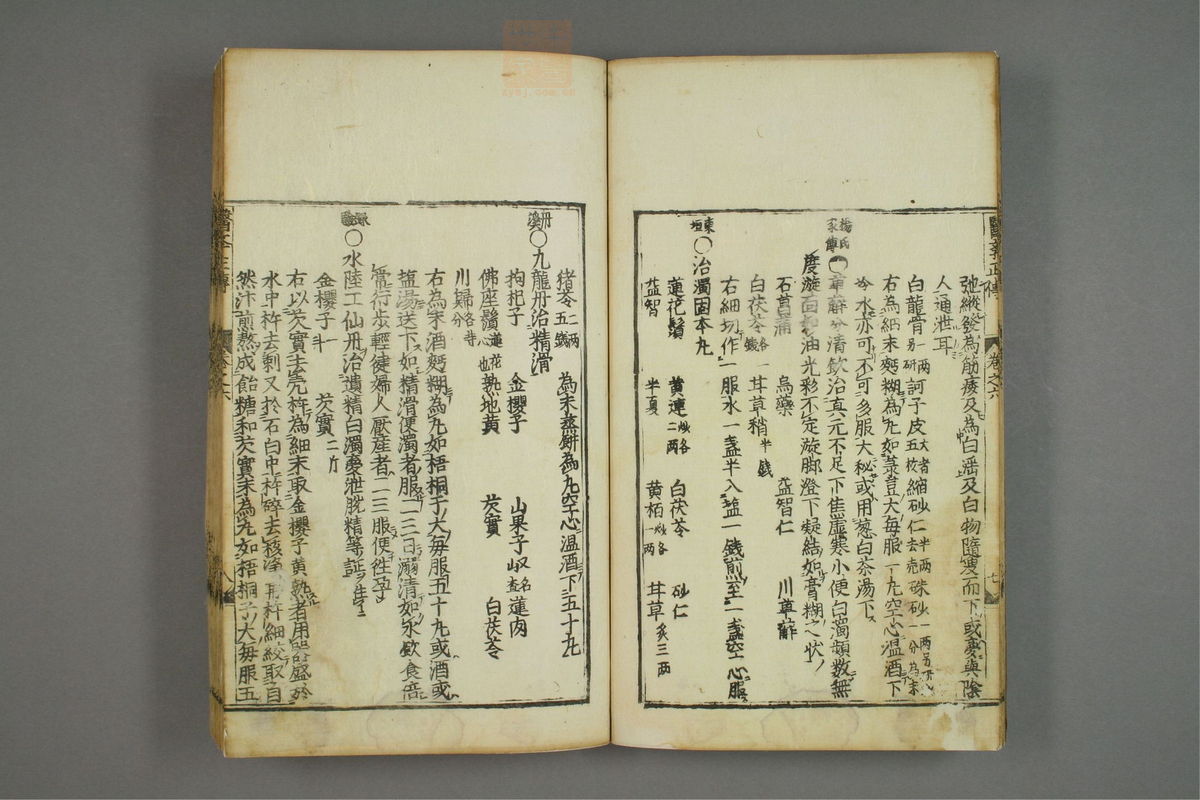 弛縱發為筋痿及為白淫及白物隨溲而下或夢與陰
人通泄耳
白龍骨一兩另研 訶子皮大者五枚 縮砂仁半兩去壳 硃砂一兩另研一分為衣
右為細末麪糊為丸如菉豆大每服一丸空心温酒下
冷水亦可不可多服大秘或用葱白茶湯下
楊氏家傳 萆薢分清飲治真元不足下焦虛寒小便白濁頻數無
度漩面如油光彩不定漩脚澄下凝結如膏糊之状
石菖蒲 烏藥 益智仁 川萆薢
白茯苓各一錢 甘草稍半錢
右細切作一服水一盞半入盐一錢煎至一盞空心服
東垣〇治濁固本丸
蓮花鬚 黄連炒各二兩 白茯苓 砂仁
益智 半夏 黄栢炒各一兩 甘草炙三兩
猪苓二兩五錢 為末蒸餅為丸空心温酒下五十丸
丹溪〇九龍丹治精滑
拘杞子 金櫻子 山果子名山査 蓮肉
佛座鬚蓮花心也 熟地黄 芡實 白茯苓
川歸各等分
右為末酒麪糊為丸如梧桐子大每服五十丸或酒或
盐湯送下如精滑便濁者服二三日溺清如水飲食倍
常行步輕健婦人厭産者二三服便徃孕
〇水陸工仙丹治遺精白濁夢泄脱精等証
金櫻子一斗 芡實二斤
右以芡實去壳杵為細末取金櫻子黄熟者用笆盛於
水中杵去剌又於石臼中杵碎去核淨再杵細絞取自
然汁煎熬成飴糖和芡實末為丸如梧桐子大每服五